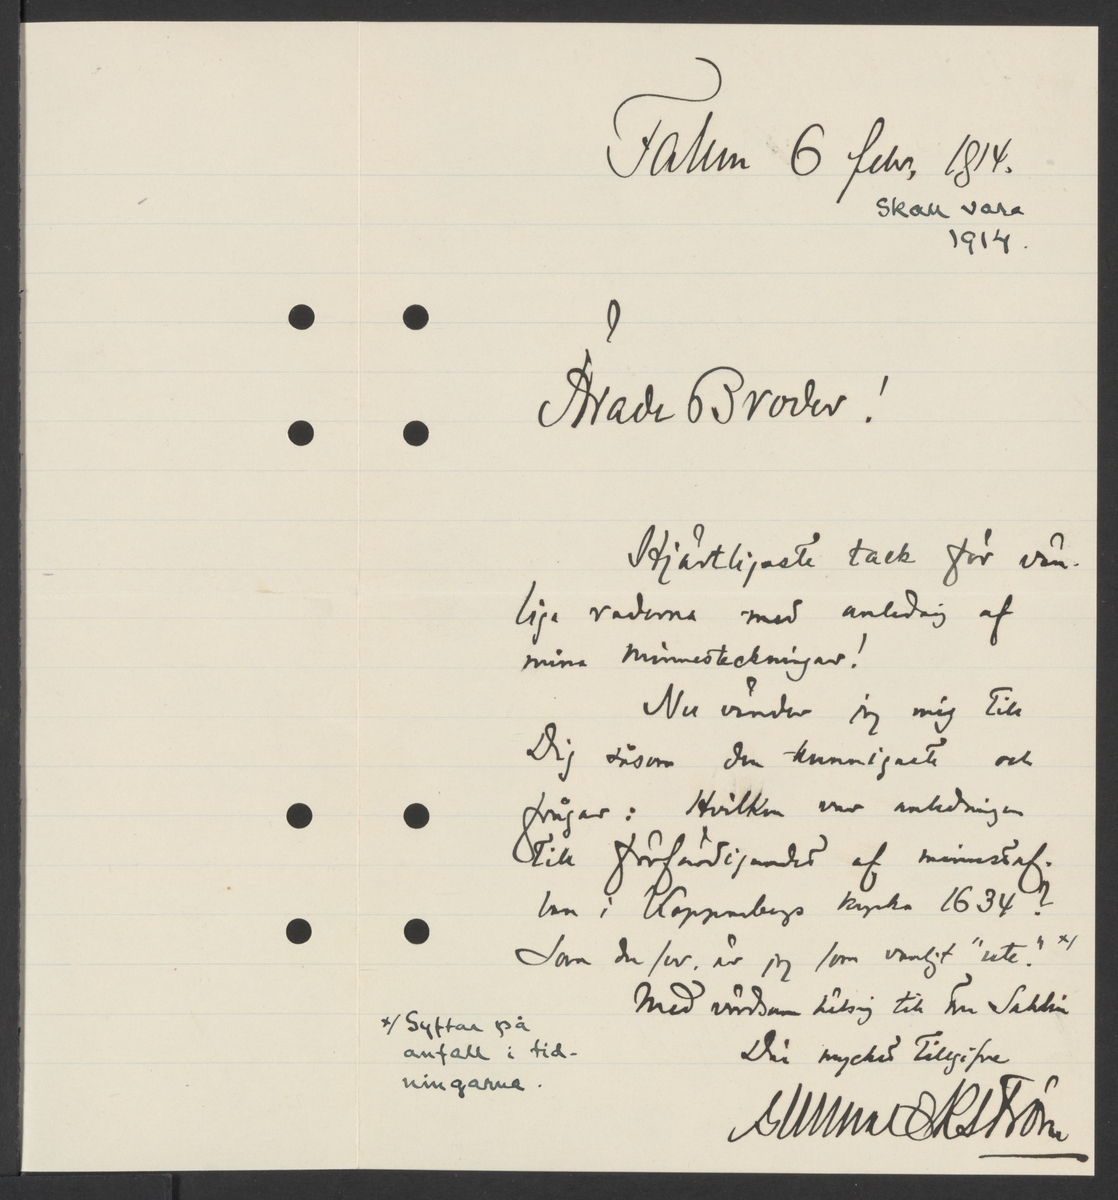 Falun 6 febr. 1814.
Skall vara
1914.
Ärade Broder!
Hjärtligaste tack för vän-
liga raderna med anledning af
mina minnesteckningar!
Nu vänder jag mig till
Dig såsom den kunnigaste och
frågar: Hvilken var anledningen
till förfärdigandet af minnestaf-
lan i Kopparbergs kyrka 1634?
Som du ser, är jag som vanligt "ute." x/
Med vördsam hälsning till Fru Sahlin
Din mycket tillgifne
Gunnar Ekström
x/ Syftar på
anfall i tid-
ningarna.